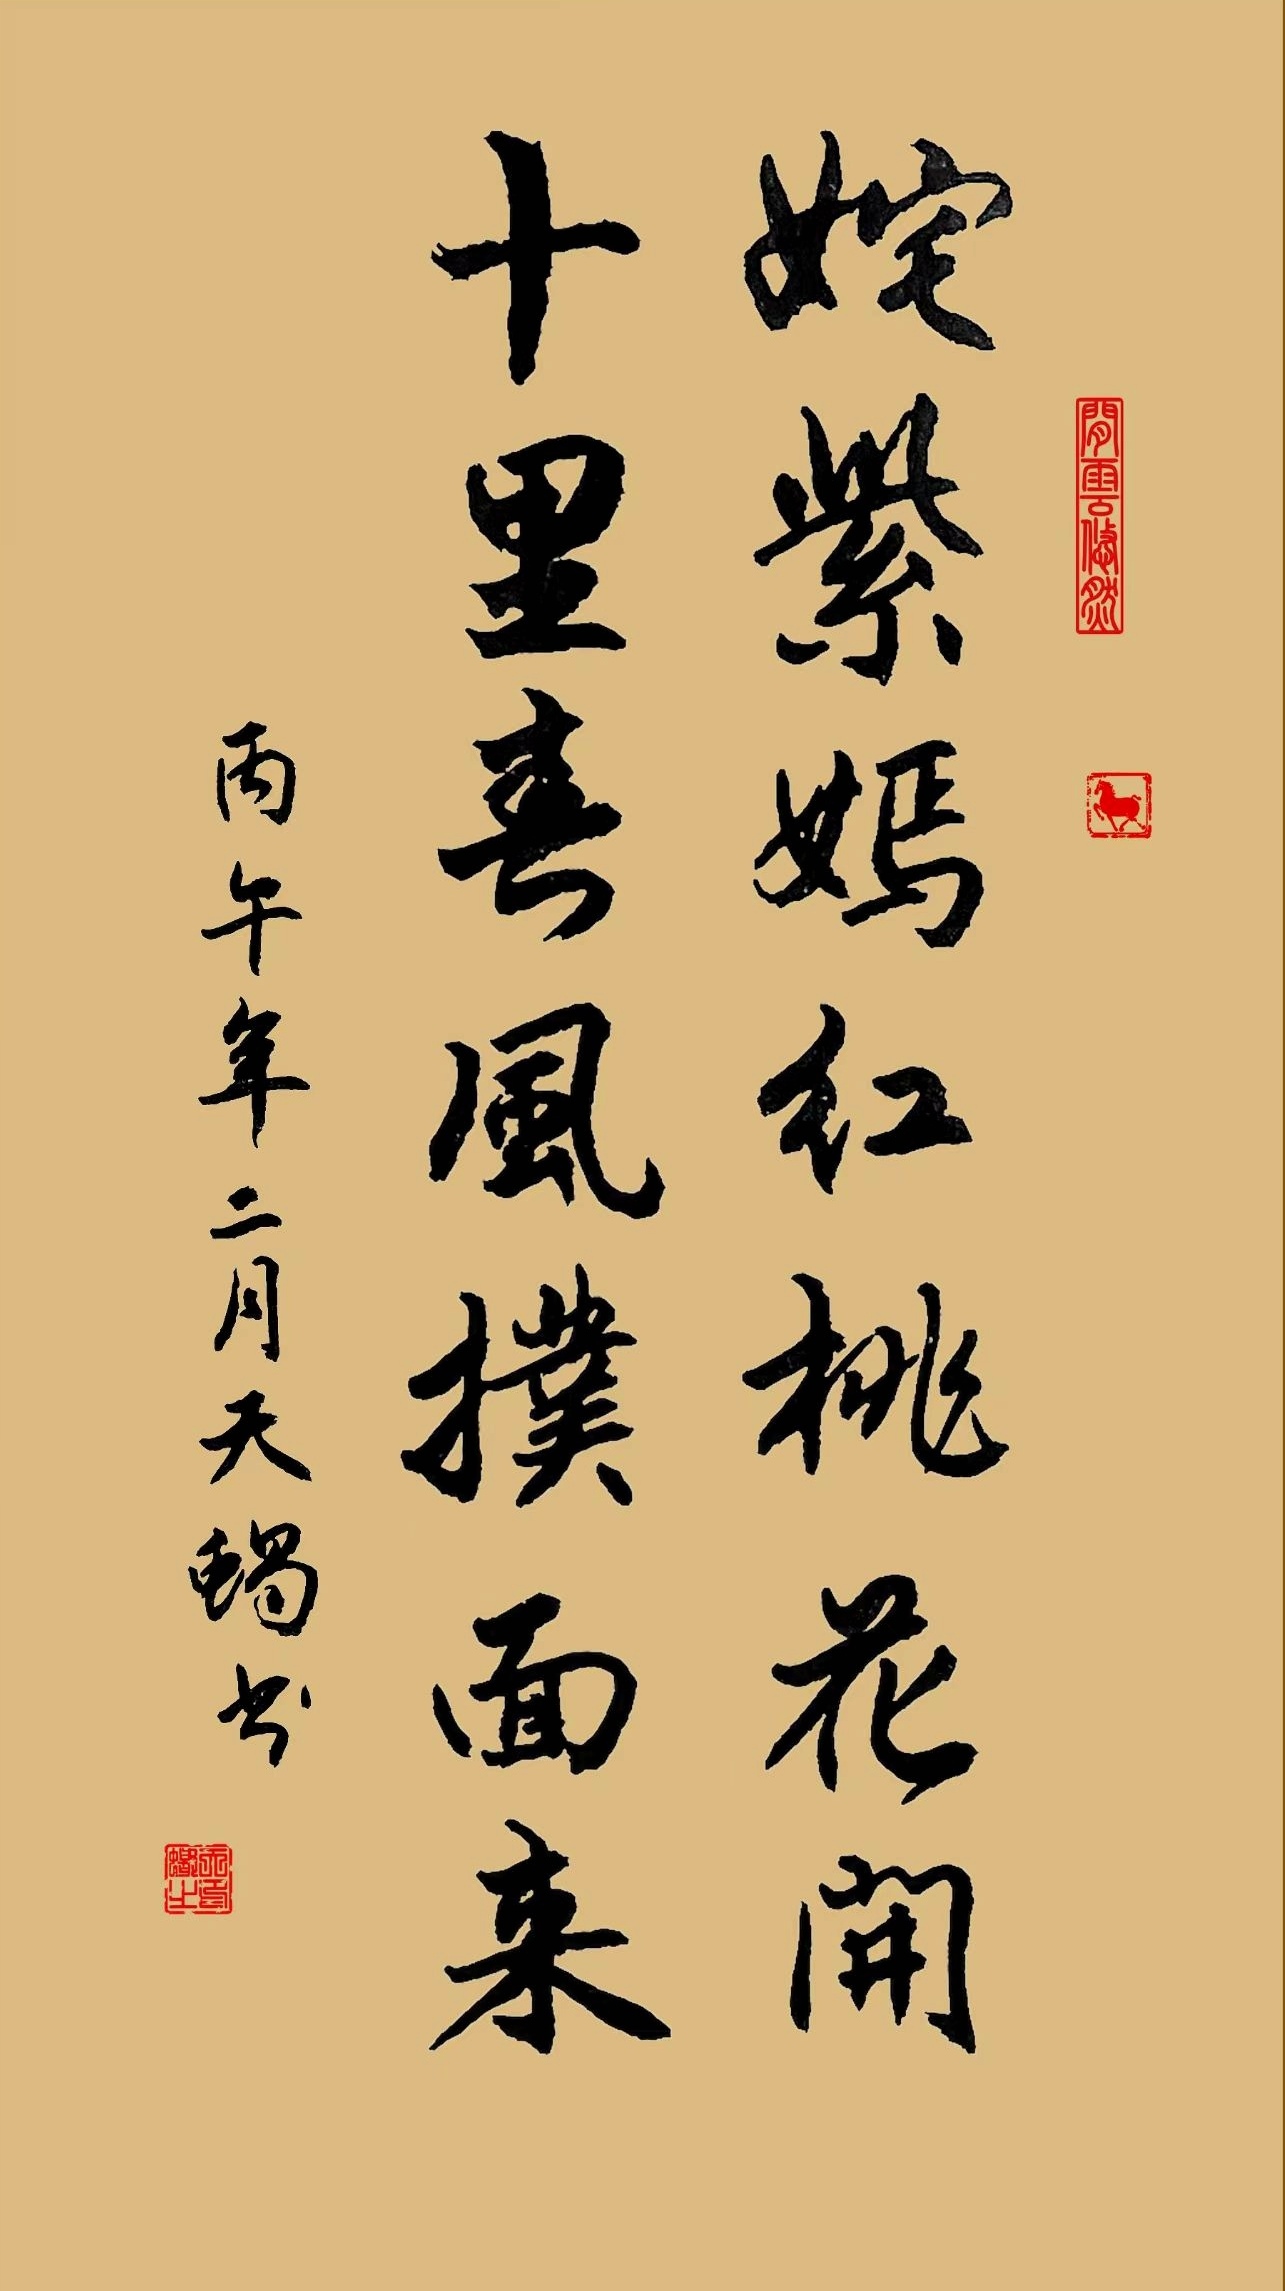 姹紫嫣红桃花開
十里春風撲面来
丙午年二月天蝎书
閒雲悠然